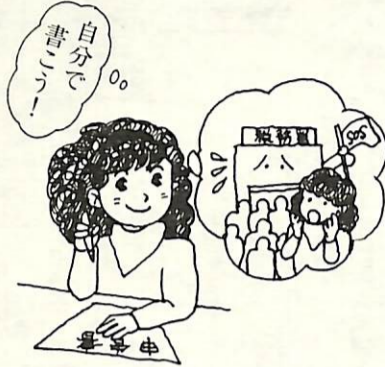 自分で
書こう!
税務署
SOS
申告書